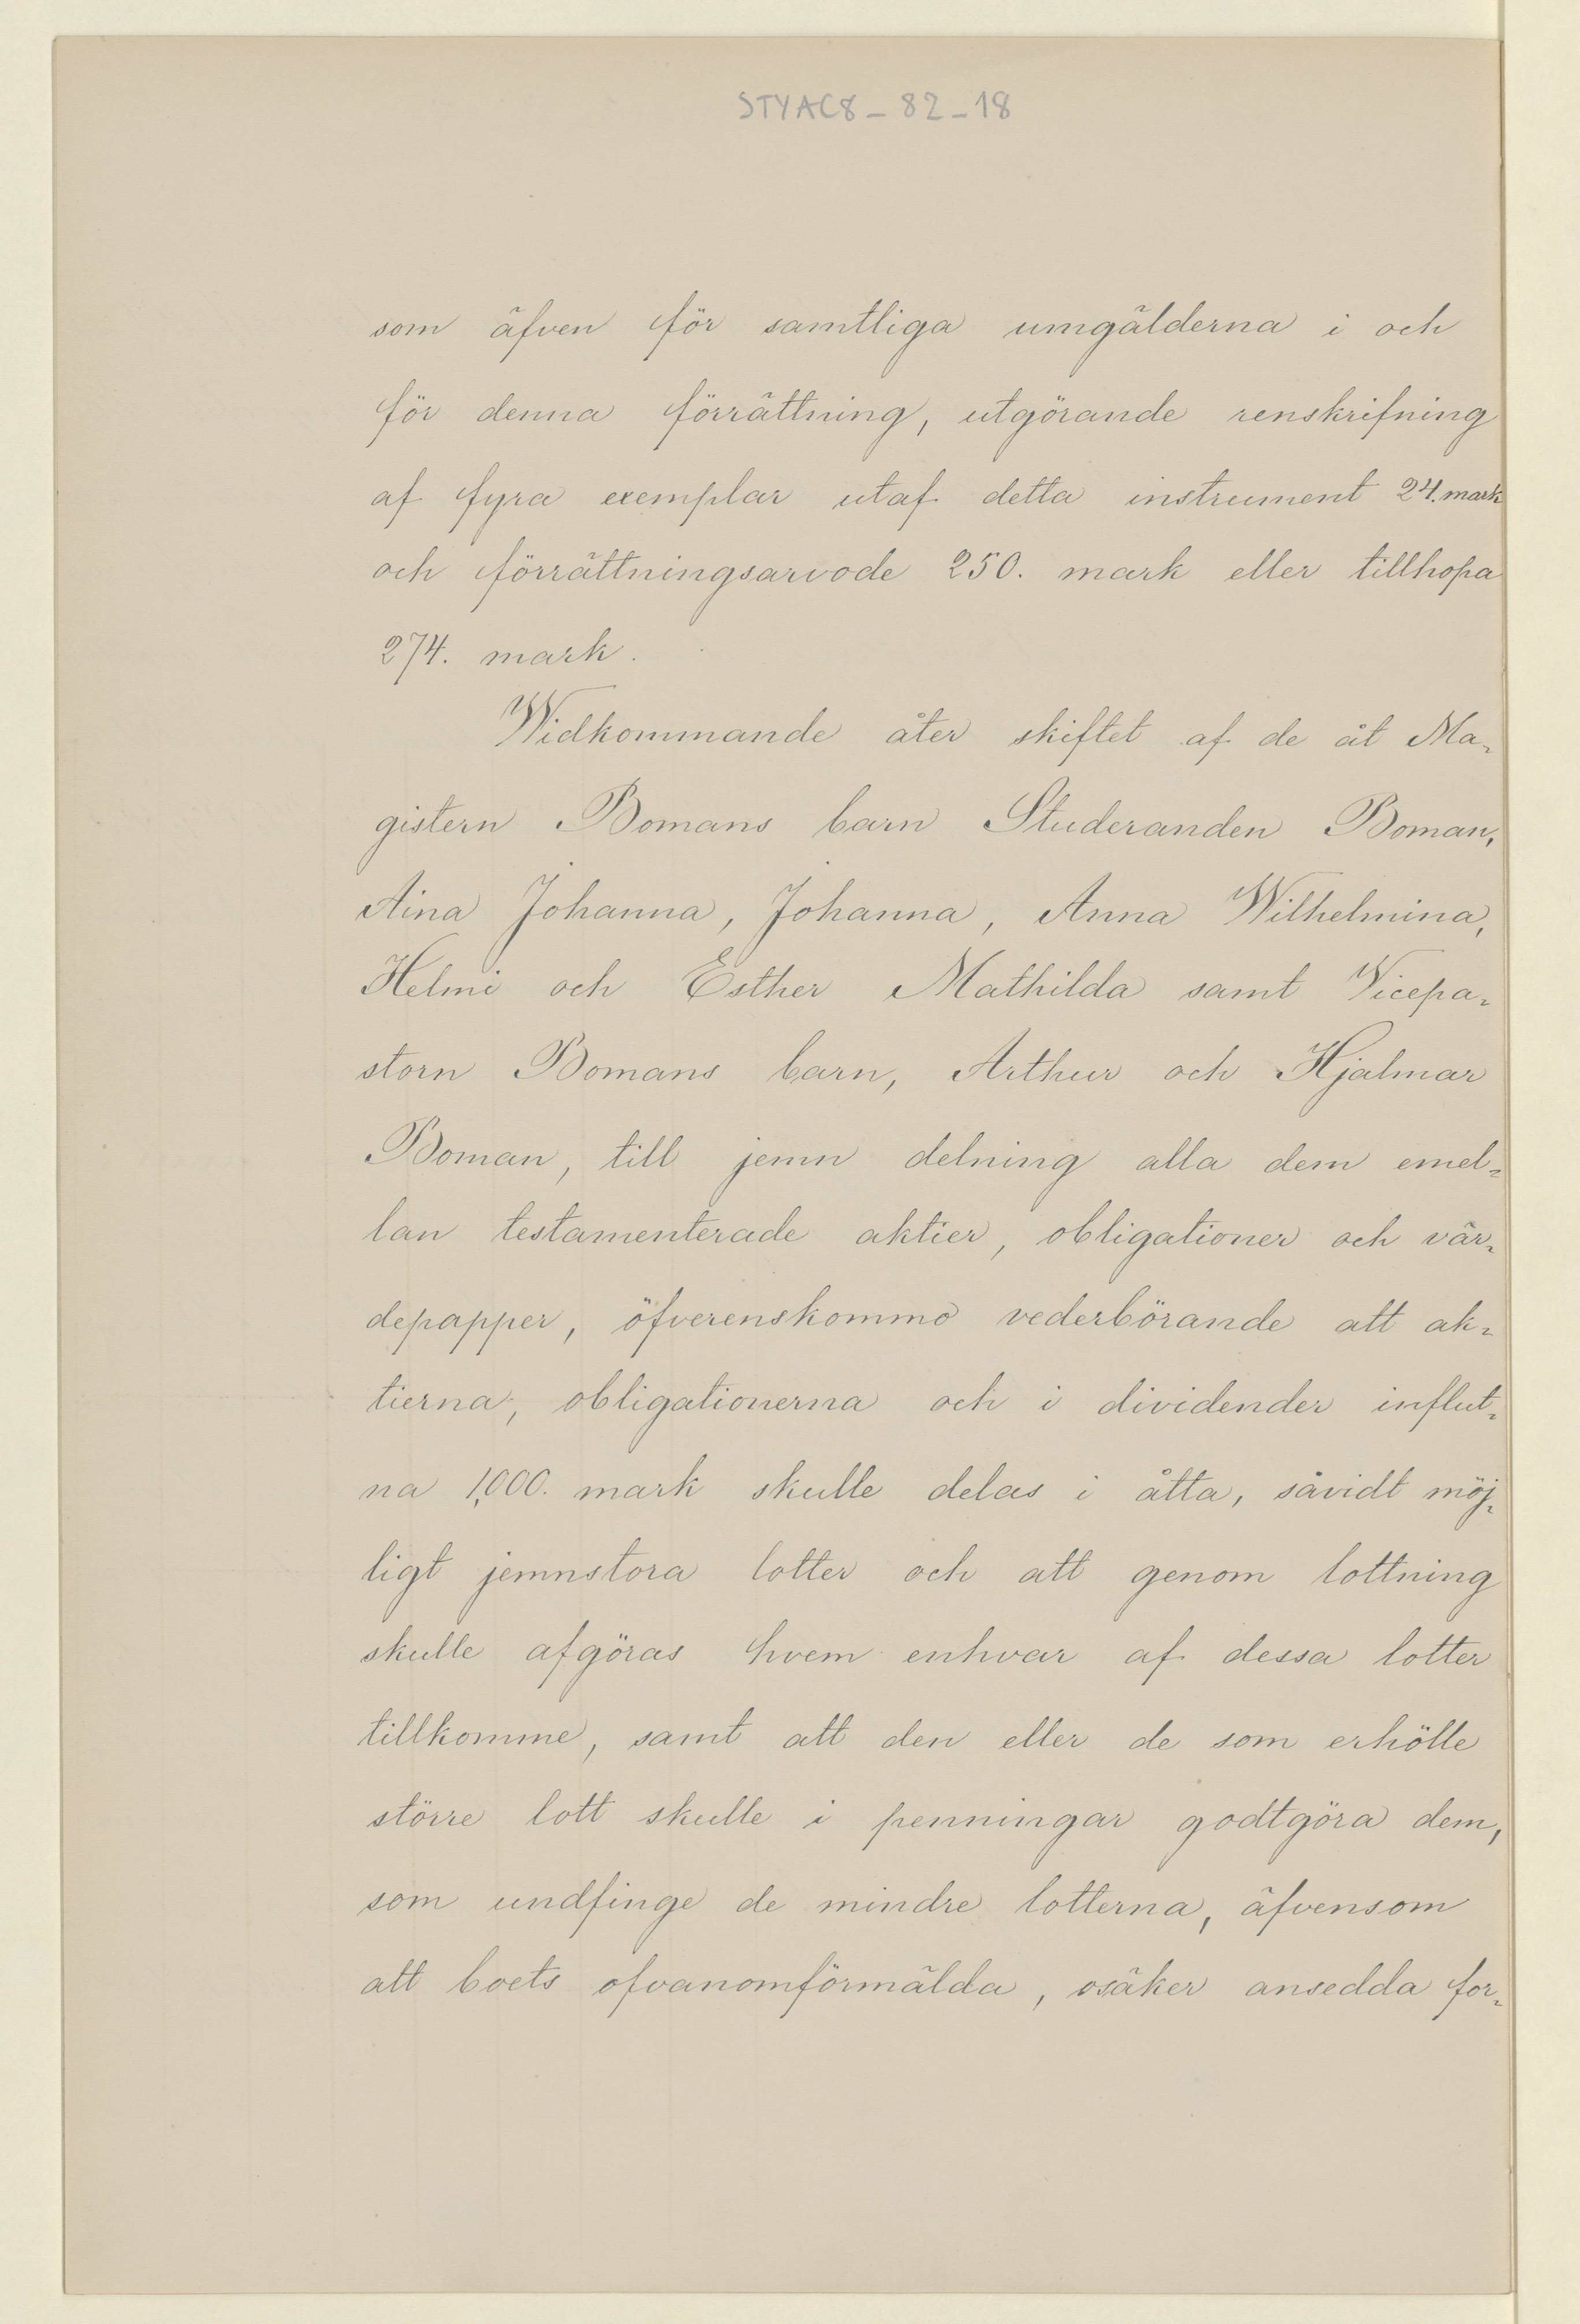 STYAC8_82_18
som äfven för samtliga umgälderna i och
för denna förrättning, utgörande renskrifning
af fyra exemplar utaf detta instrument 24. mark
och förrättningsarvode 250. mark eller tillhopa
274. mark.
Widkommande åter skiftet af de åt Ma-
gistern Bomans barn Studeranden Boman,
Aina Johanna, Johanna, Anna Wilhelmina,
Helmi och Esther Mathilda samt Vicepa-
storn Bomans barn, Arthur och Hjalmar
Boman, till jemn delning alla dem emel-
lan testamenterade aktier, obligationer och vär-
depapper, öfverenskommo vederbörande att ak-
tierna, obligationerna och i dividender influt-
na 1,000. mark skulle delas i åtta, såvidt möj-
ligt jemnstora lotter och att genom lottning
skulle afgöras hvem enhvar af dessa lotter
tillkomme, samt att den eller de som erhölle
större lott skulle i penningar godtgöra dem,
som undfinge de mindre lotterna, äfvensom
att boets ofvanomförmälda, osäker ansedda for-